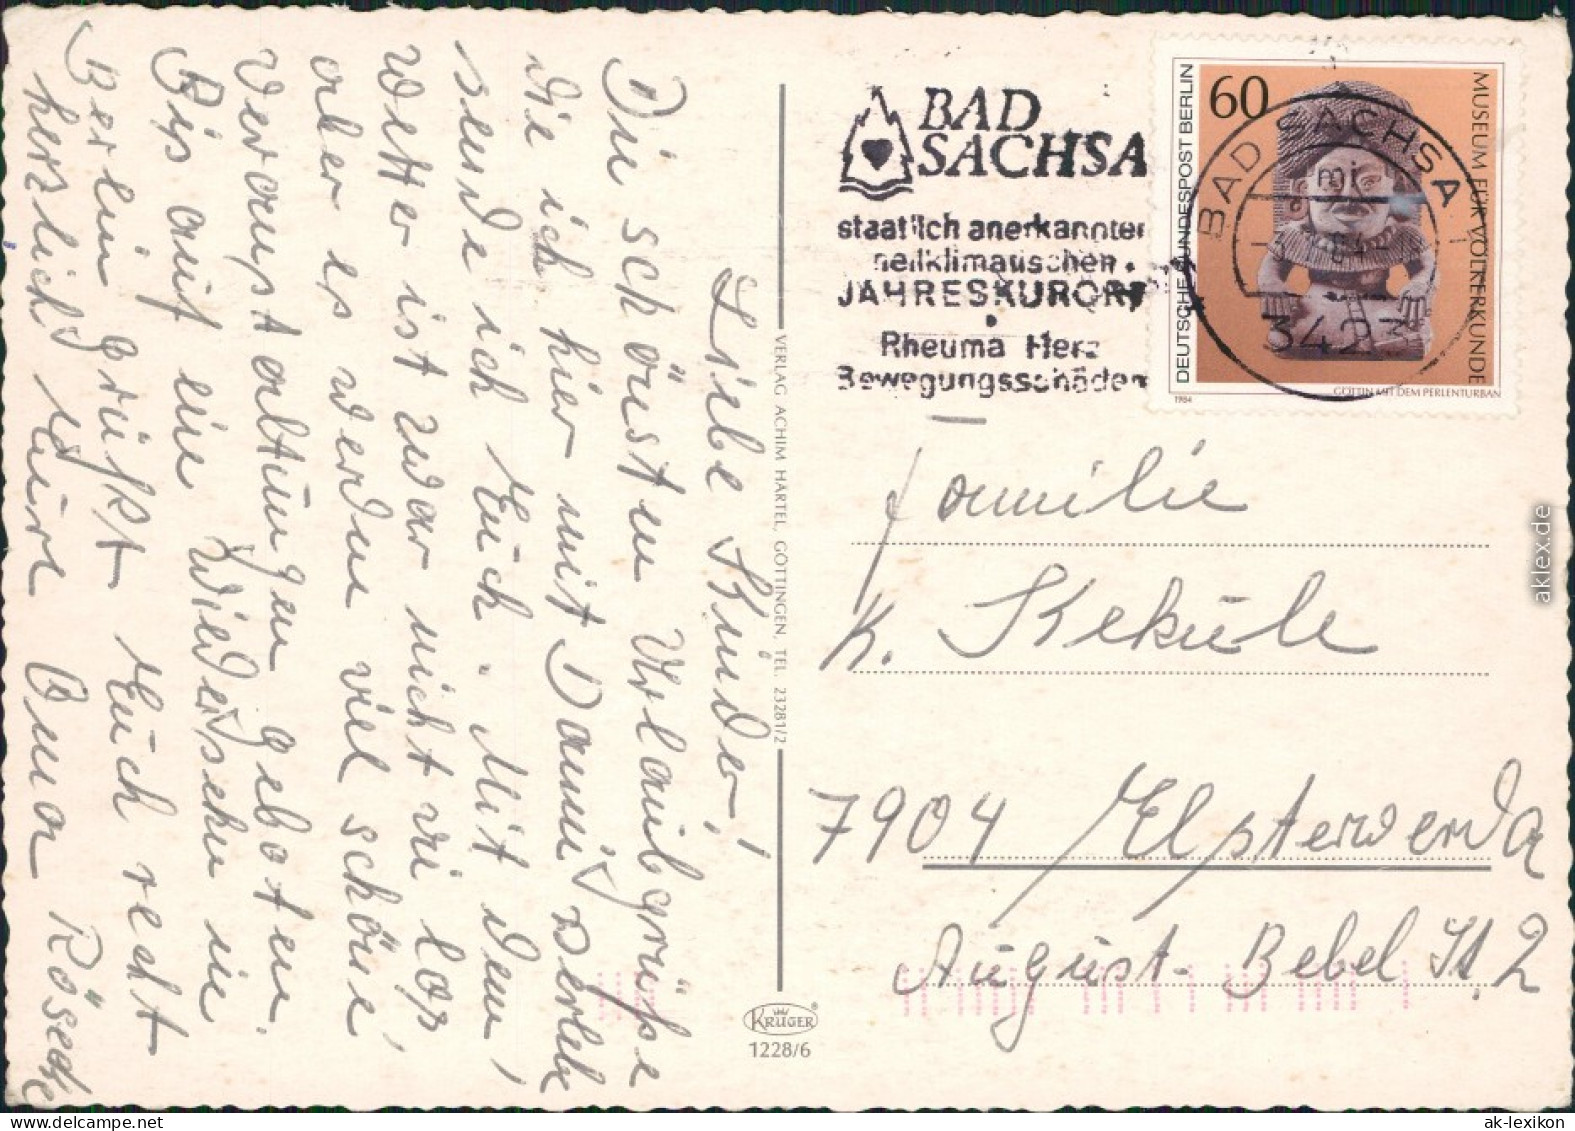 Liebe Kinder!
Die schönsten Urlaubsgrüße
die ich hier mit Dannis verlebe
sende ich Euch. Mit dem
Wetter ist zwar nicht vie los,
aber es werden viel schöne
Veranstaltungen geboten.
Bis auf ein Wiedersehn in
Berlin grüßt Euch recht
herzlich Eure Oma Röseke
VERLAG ACHIM HARTEL, GÖTTINGEN, TEL. 23281/2
KRÜGER
1228/6
BAD
SACHSA
staatlich anerkannter
heilklimatischer
JAHRESKURORT
Rheuma Herz
Bewegungsschäden
DEUTSCHE BUNDESPOST BERLIN
60
MUSEUM FÜR VÖLKERKUNDE
GÖTTIN MIT DEM PERLENTURBAN
1984
BAD SACHSA
mi
3423
Familie
K. Kekule
7904 Elsterwerda
August-Bebel St. 2
aklex.de
hippostcard.com
ak-lexikon